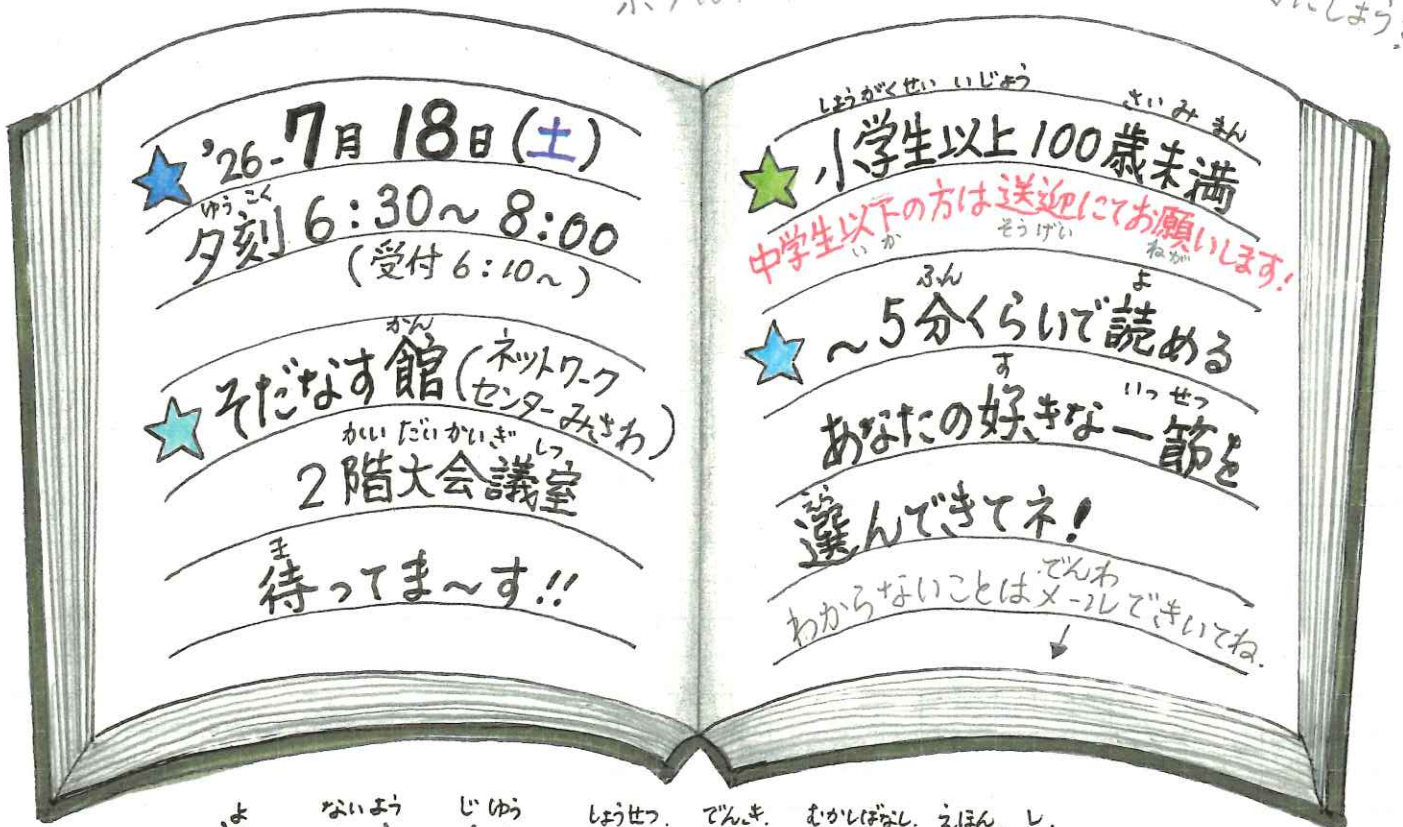 にしよう
'26-7月18日(土)
ゆうこく
夕刻 6:30~8:00
(受付 6:10~)
かん
そだなす館(ネットワーク
センターみさわ)
かい だいかいぎ しつ
2階大会議室
ま
待ってま〜す!!
しょうがくせい いじょう さい みまん
小学生以上100歳未満
中学生以下の方は送迎にてお願いします!
いか そうげい ねが
ふん よ
~5分くらいで読める
す いっせつ
あなたの好きな一節を
えら
選んできてネ!
でんわ
わからないことはメールできいてね.
よ ないよう じゆう しょうせつ. でんき. むかしばなし. えほん. し.